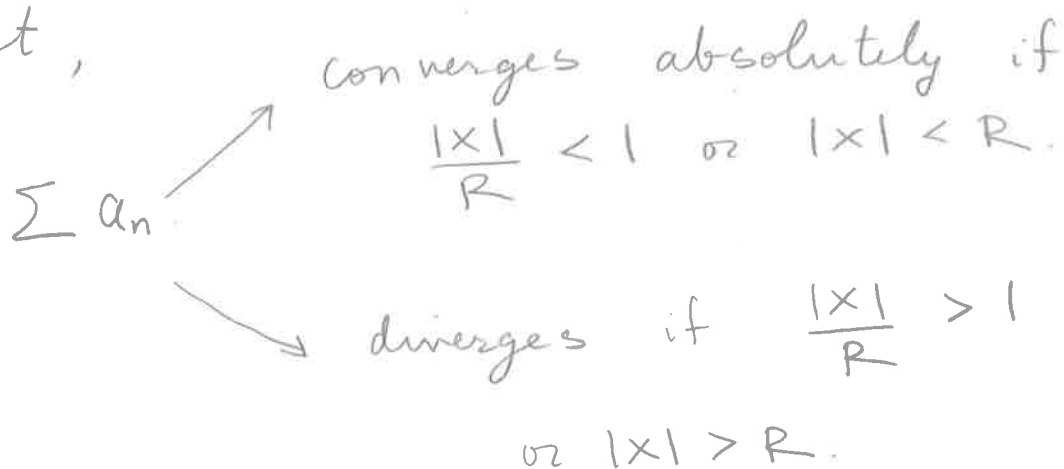 t,
converges absolutely if
|x|/R < 1 or |x| < R.
∑ aₙ
diverges if |x|/R > 1
or |x| > R.